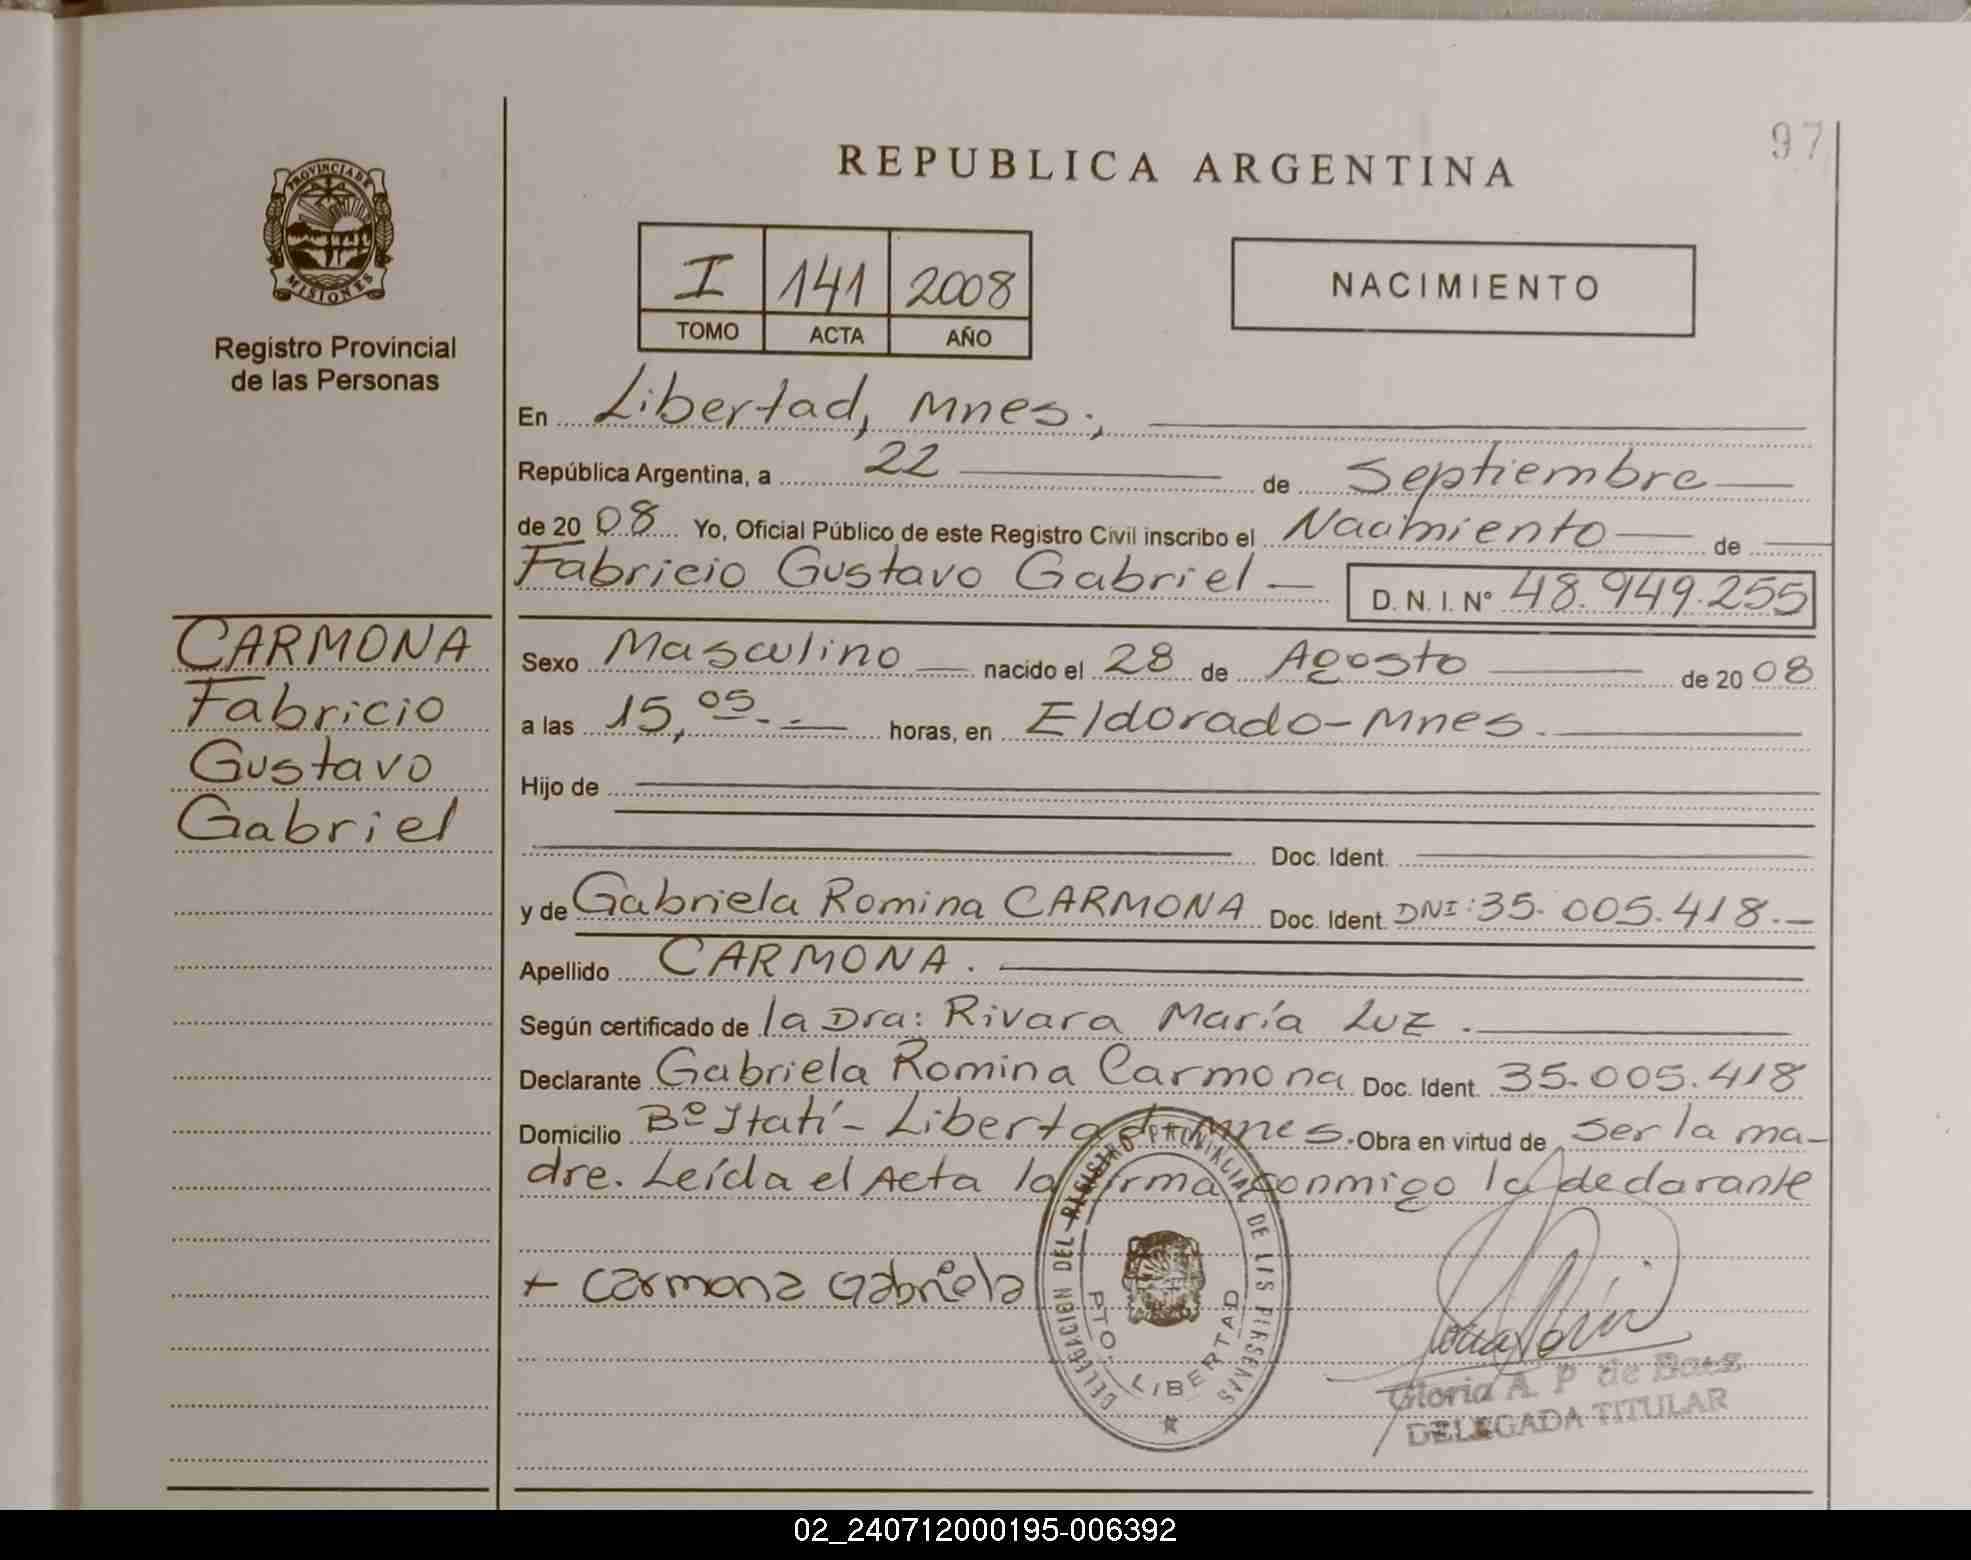 97
REPUBLICA ARGENTINA
PROVINCIA DE
MISIONES
Registro Provincial
de las Personas
I 141 2008
TOMO ACTA AÑO
NACIMIENTO
En Libertad, Mnes.,
República Argentina, a 22 de Septiembre
de 2008 Yo, Oficial Público de este Registro Civil inscribo el Nacimiento de
Fabricio Gustavo Gabriel D. N. I. Nº 48.949.255
CARMONA
Fabricio
Gustavo
Gabriel
Sexo Masculino nacido el 28 de Agosto de 2008
a las 15,05.- horas, en Eldorado-Mnes.
Hijo de
Doc. Ident.
y de Gabriela Romina CARMONA Doc. Ident. DNI: 35.005.418.-
Apellido CARMONA.
Según certificado de la Dra: Rivara María Luz.
Declarante Gabriela Romina Carmona Doc. Ident. 35.005.418
Domicilio Bº Itatí- Libertad-Mnes. Obra en virtud de ser la ma-
dre. Leída el Acta la firma conmigo la declarante
+ Carmona Gabriela
DELEGACION DEL REGISTRO PROVINCIAL DE LAS PERSONAS
PTO. LIBERTAD
Gloria A. P de Baez
DELEGADA TITULAR
02_240712000195-006392